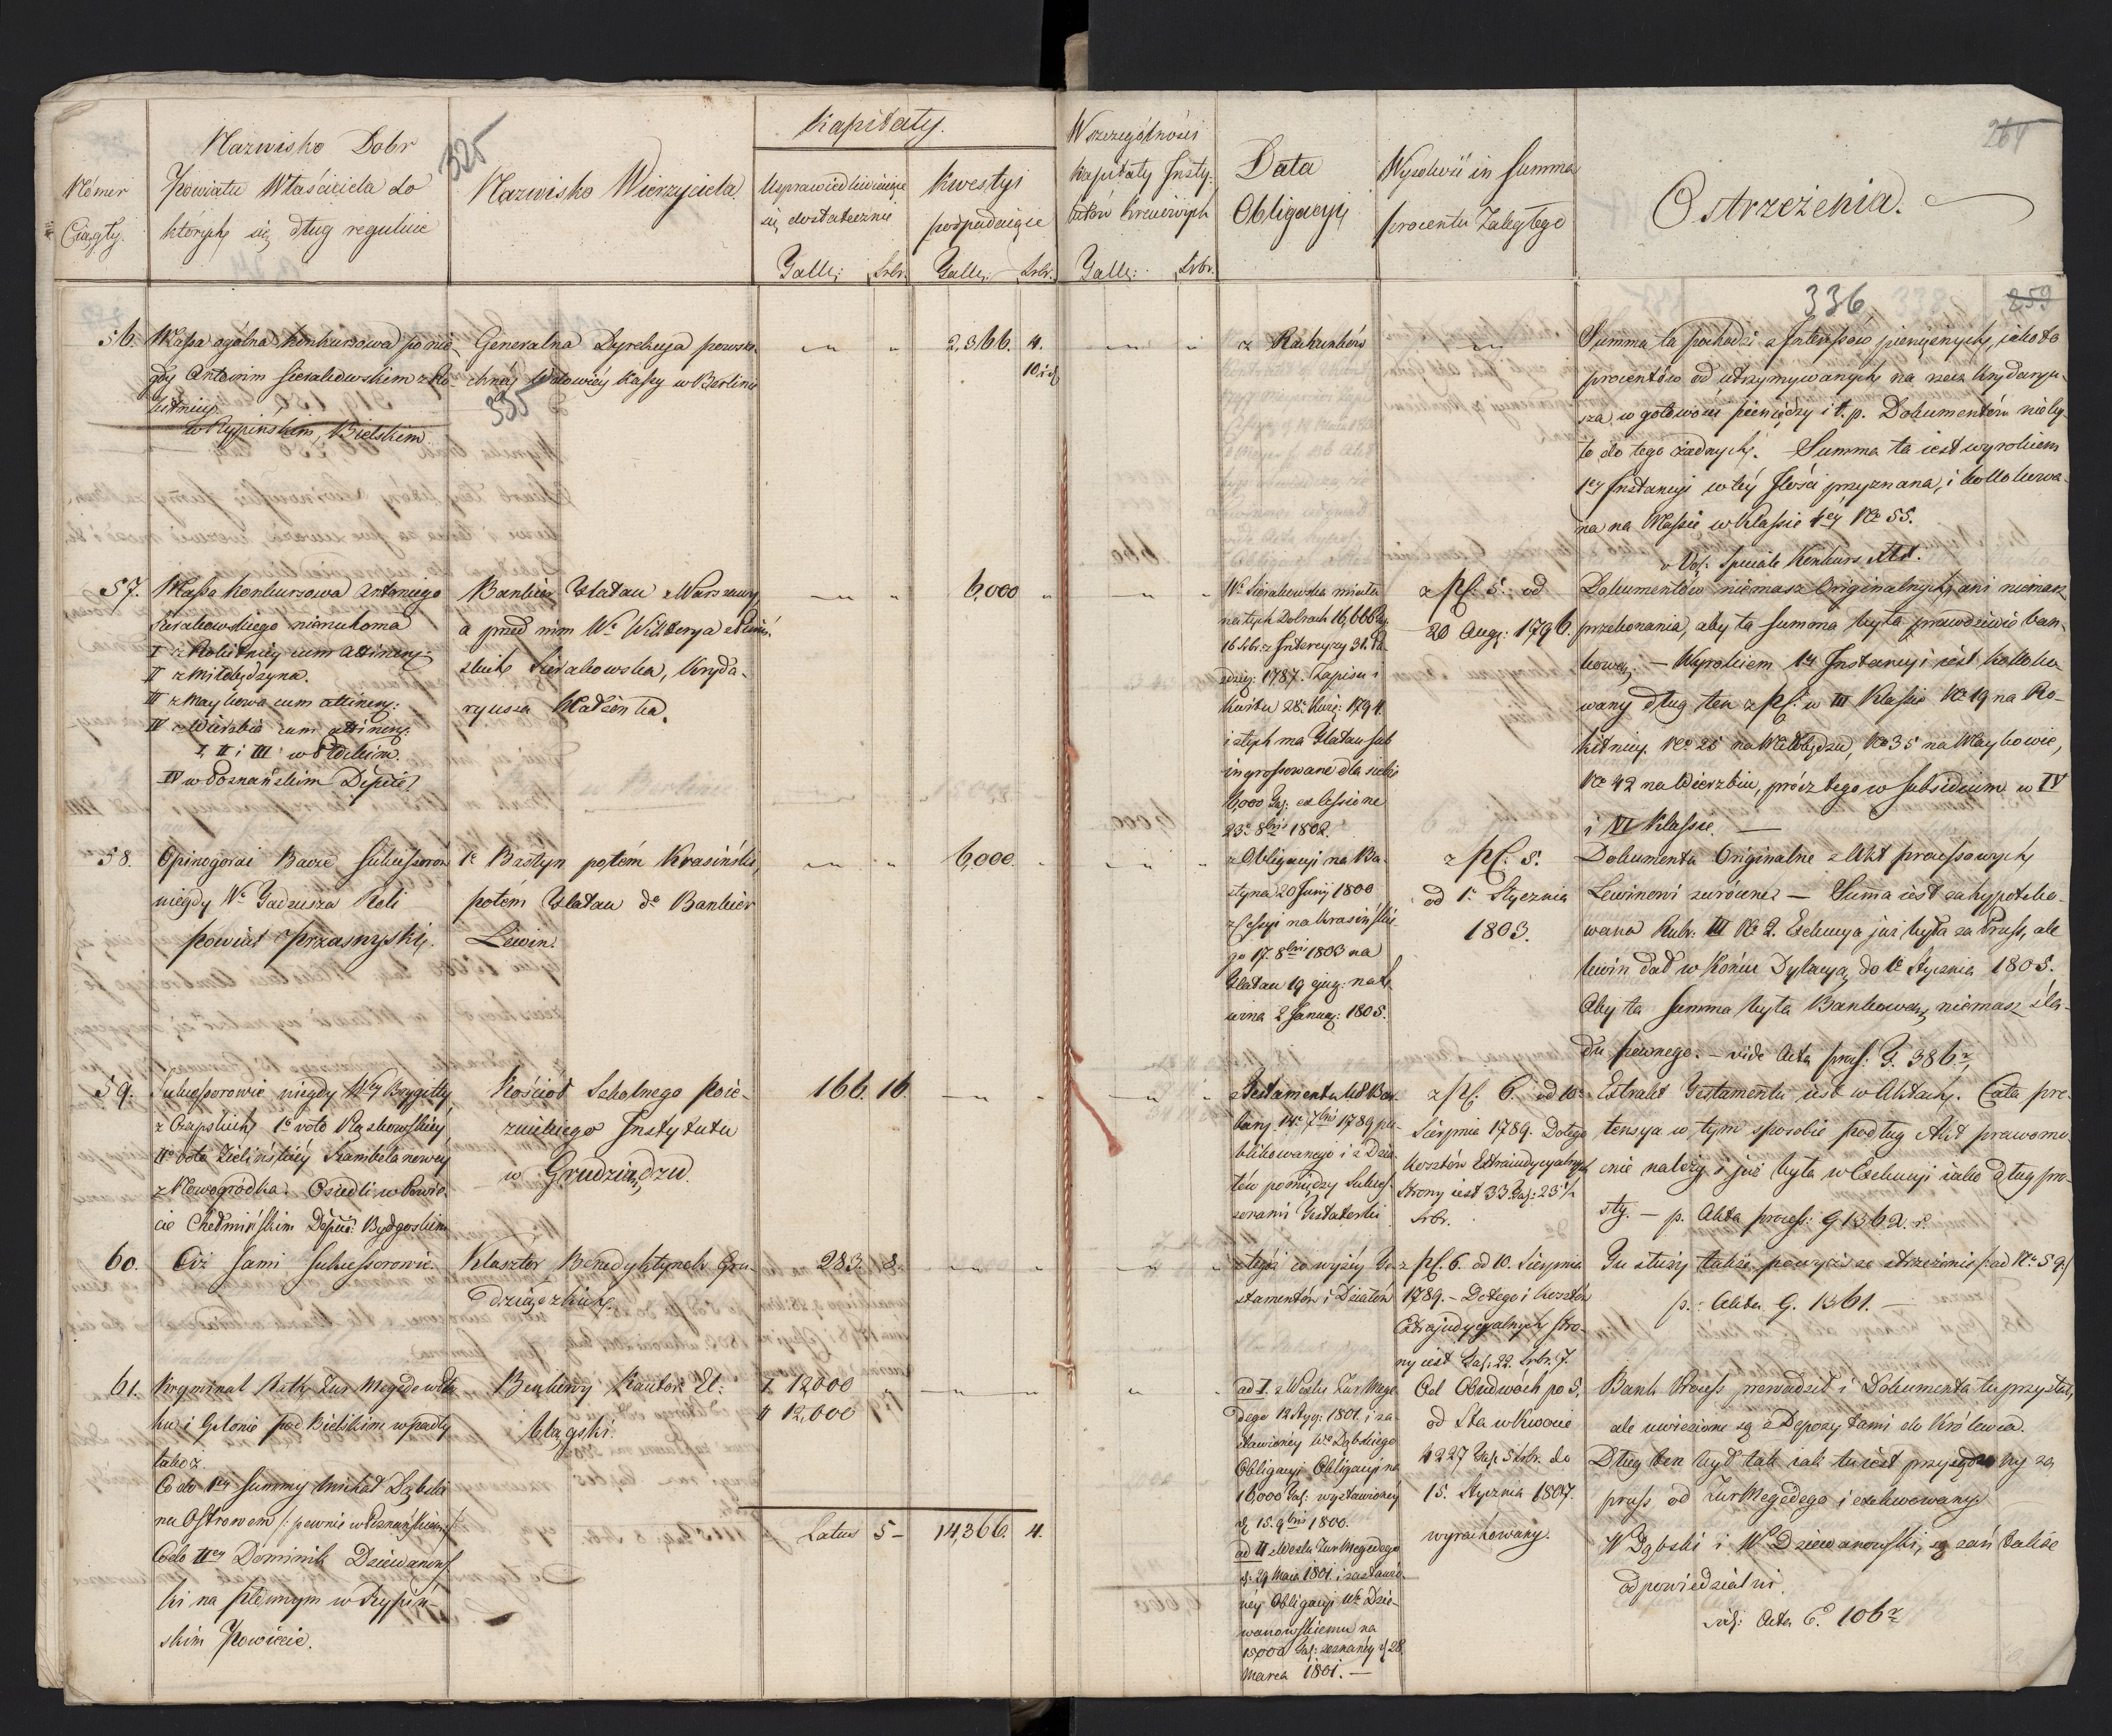 Nómer
Ciągły.
Nazwisko Dobr
Powiatu Właściciela do
których się dług reguluie
325
Nazwisko Wierzyciela
Kapitały.
Usprawiedliwiaiące
się dostatecznie
Tall: Srbr.
Kwestyi
podpadaiące
Tall: Srbr.
W szczególności
Kapitały Insty-
tutów kraiowych
Tall: Srbr.
Data
Obligacyi
Wysokość in Summa
procentu Zaległego
Ostrzeżenia.
261
336
259
56.
Massa ogólna konkursowa po nie-
gdy Antonim Sierakowskim z Ro-
kitnicy
w Rypińskim, Bielskim
Generalna Dyrekcya powsze-
chnéj Wdowiéj Kassy w Berlinie
335
2,366. 4.
10.
z Rachunków
Summa ta pochodzi z Interessów pieniężnych, iako to
procentów od utrzymywanych na rzecz Krydaryu-
sza w gotowości pieniędzy i t. p. Dokumentów nieby-
ło do tego żadnych. Summa ta iest wyrokiem
1ey Instancyi w téy Ilości przyznana, i kollokowa-
na na Massie w Klassie 1ey No 55.
v. Vol: Speciale Konkurs
57.
Massa Konkursowa Antoniego
Sierakowskiego nieruchoma
I z Rokitnicy cum attinen:
II z Miłobędzyna.
III z Maykowa cum attinen:
IV z Wierzbia cum attinen:
I II i III w Płockim.
IV w Poznańskim Depcie
Bankier Zlatau z Warszawy
a przed nim Wa Wiktorya z
Sierakowska, Kryda-
ryusza Małżonka.
6,000
Wa Sierakowska miała
na tych Dobrach 16,666 tal
16 srbr: z Intercyzy 31.
1787. Zapisu i
1794
i z tych ma Zlatau sub
ingrossowane dla siebie
6,000 Tal: ex Cessione
23o 8bris 1802.
z pC. 5. od
20 Aug: 1796.
Dokumentów niemasz Originalnych, ani niemasz
przekonania, aby ta summa była prawdziwie ban-
kową. — Wyrokiem 1ey Instancyi iest kolloko-
wany dług ten z pC. w III Klassie No 19 na Ro-
kitnicy No 25 na Miłobędzu, No 35 na Maykowie,
No 42 na Wierzbiu, prócz tego w subsidium w IV
i VI Klassie. —
58.
Opinogórai Bacze Sukcessorów
niegdy Wo Tadeusza Reli
powiat Przasnyski.
1o Basztyn potém Krasiński,
potém Zlatau do Bankier
Lewin.
6,000
z Obligacyi na Ba-
sztyna 20 Junij 1800
z Cessyi na Krasiński-
go 17. 8bris 1803 na
Zlatau 19 ejug: na Le-
wina 2 Januar: 1805.
z pC. 5.
od 1o Stycznia
1803.
Dokumenta Originalne z Akt processowych
Lewinowi zwrócone — Summa iest zahypoteko-
wana Rubr. III No 2. Exekucya już była za Pruss, ale
Lewin dał w końcu Dylacyą do 1o Stycznia 1805.
Aby ta summa była Bankową, niemasz śla-
du pewnego. — vide Acta proc: G. 386
59.
Sukcessorowie niegdy Wey Brygitty
z Czapskich 1o voto Rąskowskiéy
IIo voto Zielińskiéy Szambelanowey
z Nowogródka. Osiedli w Powie-
cie Chełmińskim Depcie: Bydgoskim
Kościół Szkolnego Poie-
zuickiego Instytutu
w Grudziądzu.
166. 16.
z Testamentu
14o 7bris 1789 pu-
blikowanego i z Dzia-
łów pomiędzy Sukces-
sorami Testatorki
z pC. 6. od 10o
Sierpnia 1789. Do tego
kosztów Extraiudycyalnych
strony iest 33 Tal: 23 1/2
srbr.
Extrakt Testamentu iest w Aktach. Cała pre-
tensya w tym sposobie podług Akt prawomo-
cnie należy i już była w Exekucyi iako dług pro-
sty. — p. Akta process: G 1362.
60.
Ciż sami Sukcessorowie.
Klasztor Benedyktynek Gru-
dziądzkich.
283. 8.
z tegóż co wyżéy Te-
stamentów i Działów
z pC. 6. od 10. Sierpnia
1789. — Do tego i kosztów
Extrajudycyalnych stro-
ny iest Tal: 22. srbr. 7.
Tu służy także powyższe ostrzeżenie /: ad No 59:/
p. Akta G. 1361. —
61.
Kryminal Rath Zur Megede w
i Gutonie pod Bielskim w
także.
Co do 1ey summy Michał Dąbski
na Ostrowem /: pewnie w Poznańskim :/
Co do IIey Dominik Dziewanows-
ki na Płonnym w Rypiń-
skim Powiecie.
Bankowy Kantor El-
blągski.
I 12000
II 12,000
ad I. z Wexlu Zur Mege-
dego 12 Styg: 1801. i za-
stawionéy Wo Dąbskiego
Obligacyi Obligacyi na
16,000 Tal: wystawionéy
d. 15. 9bris 1800.
ad II z Wexlu Zur Megedego
d: 29 Maia 1801. i zastawio-
néy Obligacyi Wo Dzie-
wanowskiemu na
15,000 Tal: zeznanéy d 28.
Marca 1801. —
Od Obudwóch po 5.
od Sta w kwocie
4227 Tal: 5 srbr. do
15. Stycznia 1807.
wyrachowany.
Bank Process prowadził i Dokumenta tu przysłał,
ale uwiezione są z Depozytami do Królewca.
Dług ten był tak iak tu iest przysądzony za
pruss od Zur Megedego i exekwowany.
W Dąbski i W Dziewanowski, są zań także
odpowiedzialni.
vid: Acta C. 106
Latus 5 — 14,366. 4.